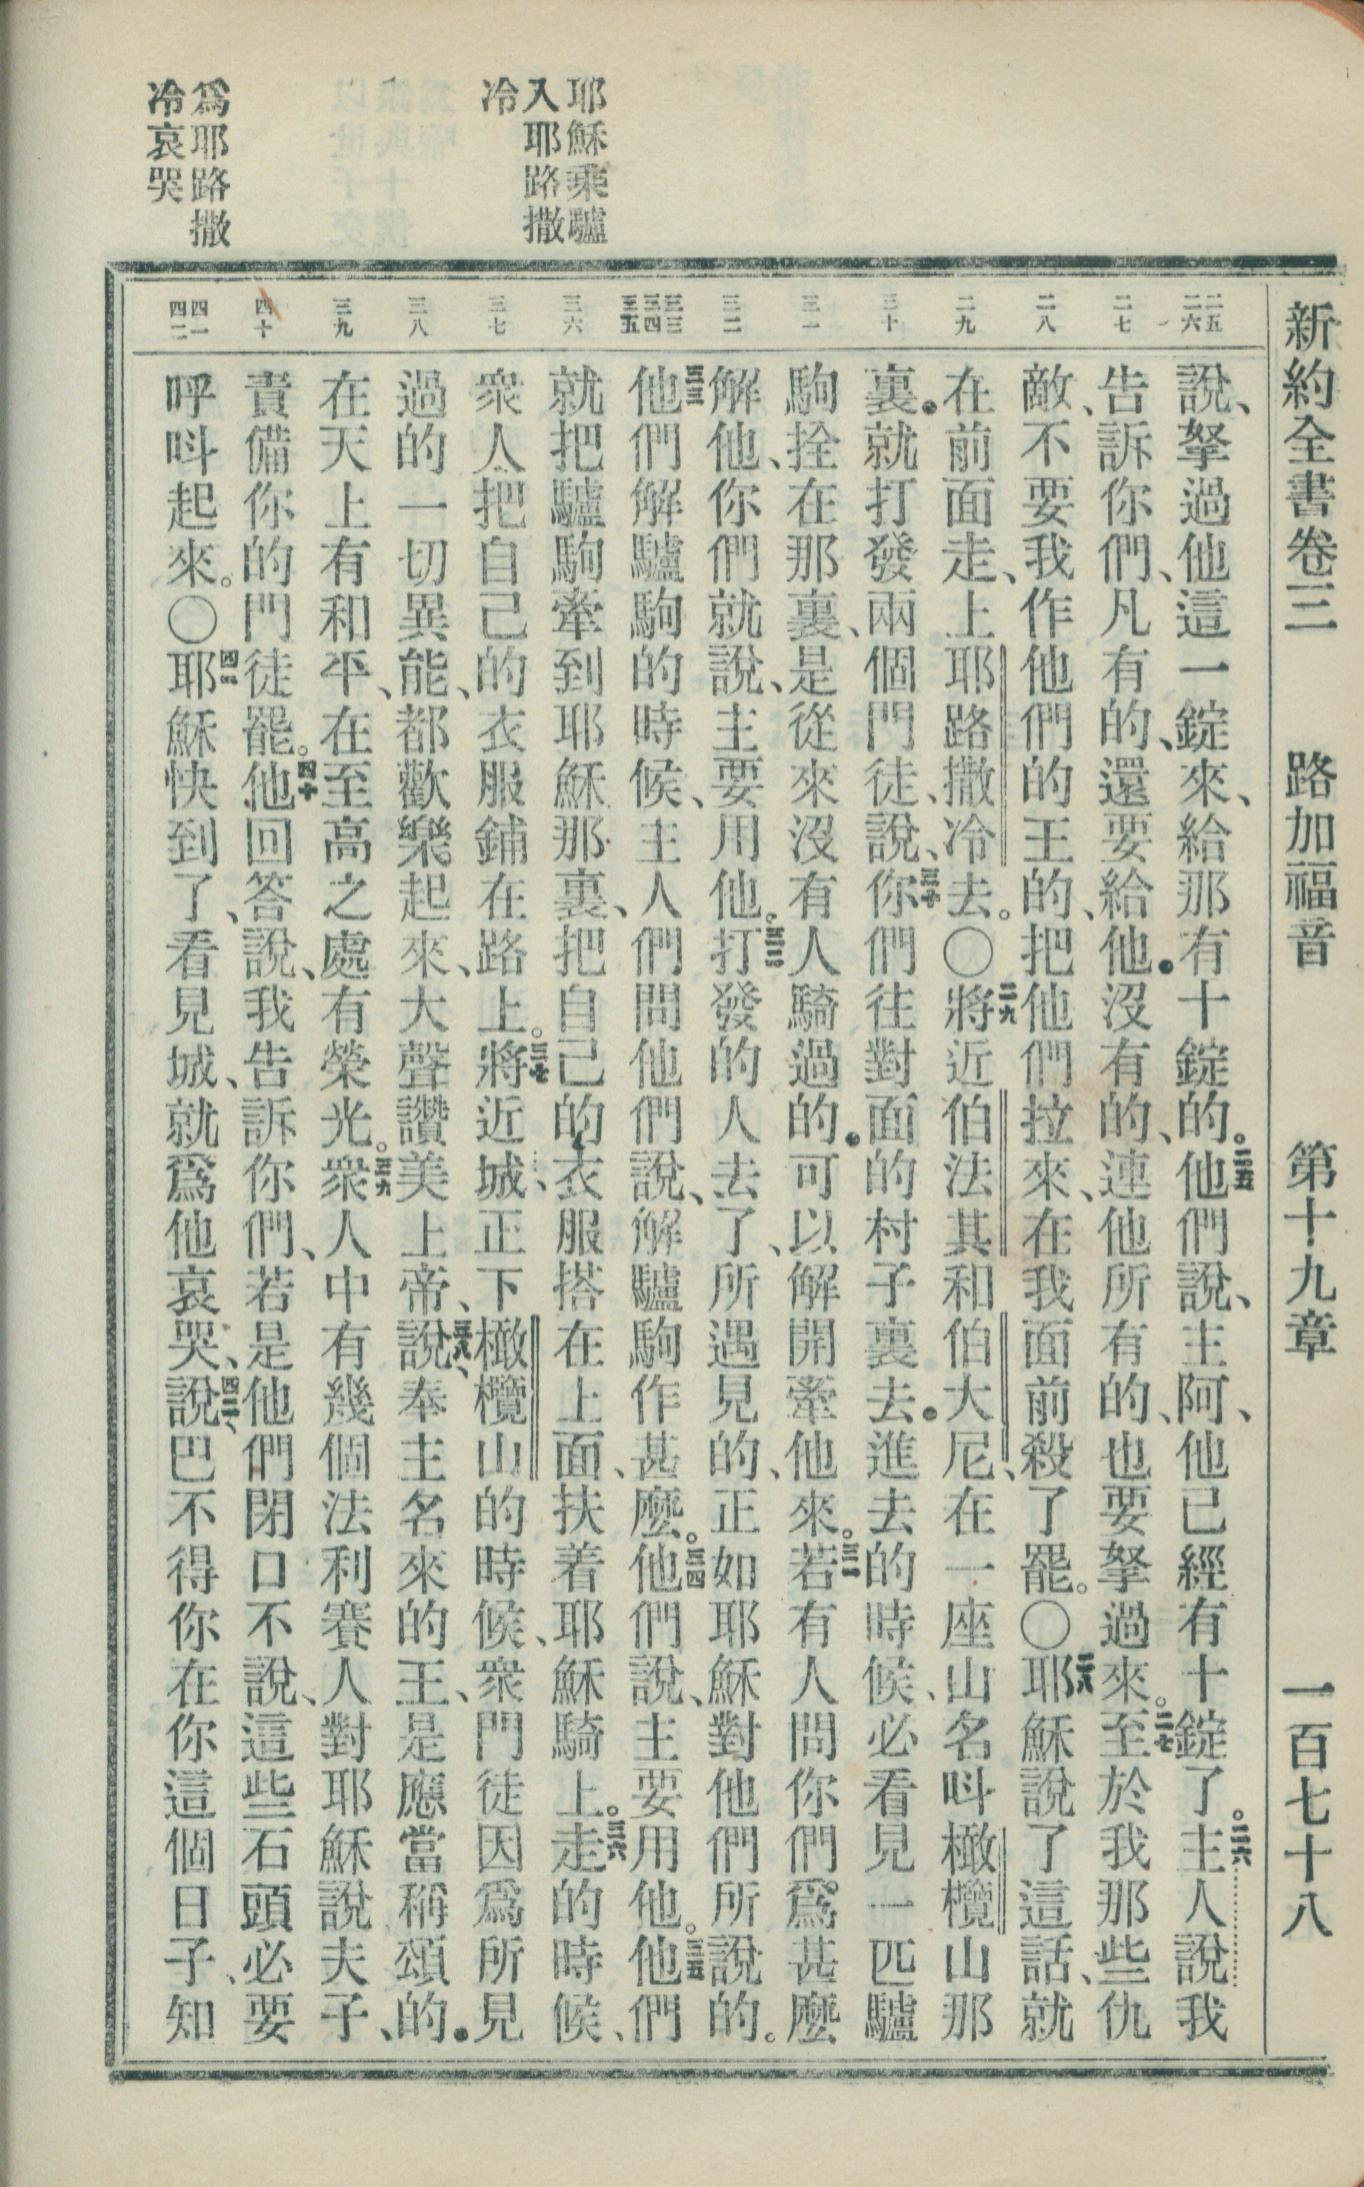 新約全書卷三　路加福音　第十九章　一百七十八
二五 二六
說、拏過他這一錠來、給那有十錠的。二五他們說、主阿、他已經有十錠了。二六主人說我
二七
告訴你們、凡有的、還要給他．沒有的、連他所有的、也要拏過來。二七至於我那些仇
二八
敵、不要我作他們的王的、把他們拉來、在我面前殺了罷。〇二八耶穌說了這話、就
二九
在前面走、上耶路撒冷去。〇二九將近伯法其和伯大尼、在一座山名呌橄欖山那
三十
裏．就打發兩個門徒、說、三十你們往對面的村子裏去．進去的時候、必看見一匹驢
三一
駒拴在那裏、是從來沒有人騎過的．可以解開牽他來。三一若有人問你們爲甚麼
三二
解他、你們就說、主要用他。三二打發的人去了、所遇見的、正如耶穌對他們所說的。
三三 三四 三五
三三他們解驢駒的時候、主人們問他們說、解驢駒作甚麼。三四他們說、主要用他。三五他們
三六
就把驢駒牽到耶穌那裏、把自己的衣服搭在上面、扶着耶穌騎上。三六走的時候、
三七
衆人把自己的衣服鋪在路上。三七將近城、正下橄欖山的時候、衆門徒因爲所見
三八
過的一切異能、都歡樂起來、大聲讚美上帝、三八說、奉主名來的王、是應當稱頌的．
三九
在天上有和平、在至高之處有榮光。三九衆人中有幾個法利賽人對耶穌說夫子、
四十
責備你的門徒罷。四十他回答說、我告訴你們、若是他們閉口不說、這些石頭必要
四一 四二
呼呌起來。〇四一耶穌快到了、看見城、就爲他哀哭、四二說、巴不得你在你這個日子、知
耶穌乘驢
入耶路撒
冷
爲耶路撒
冷哀哭